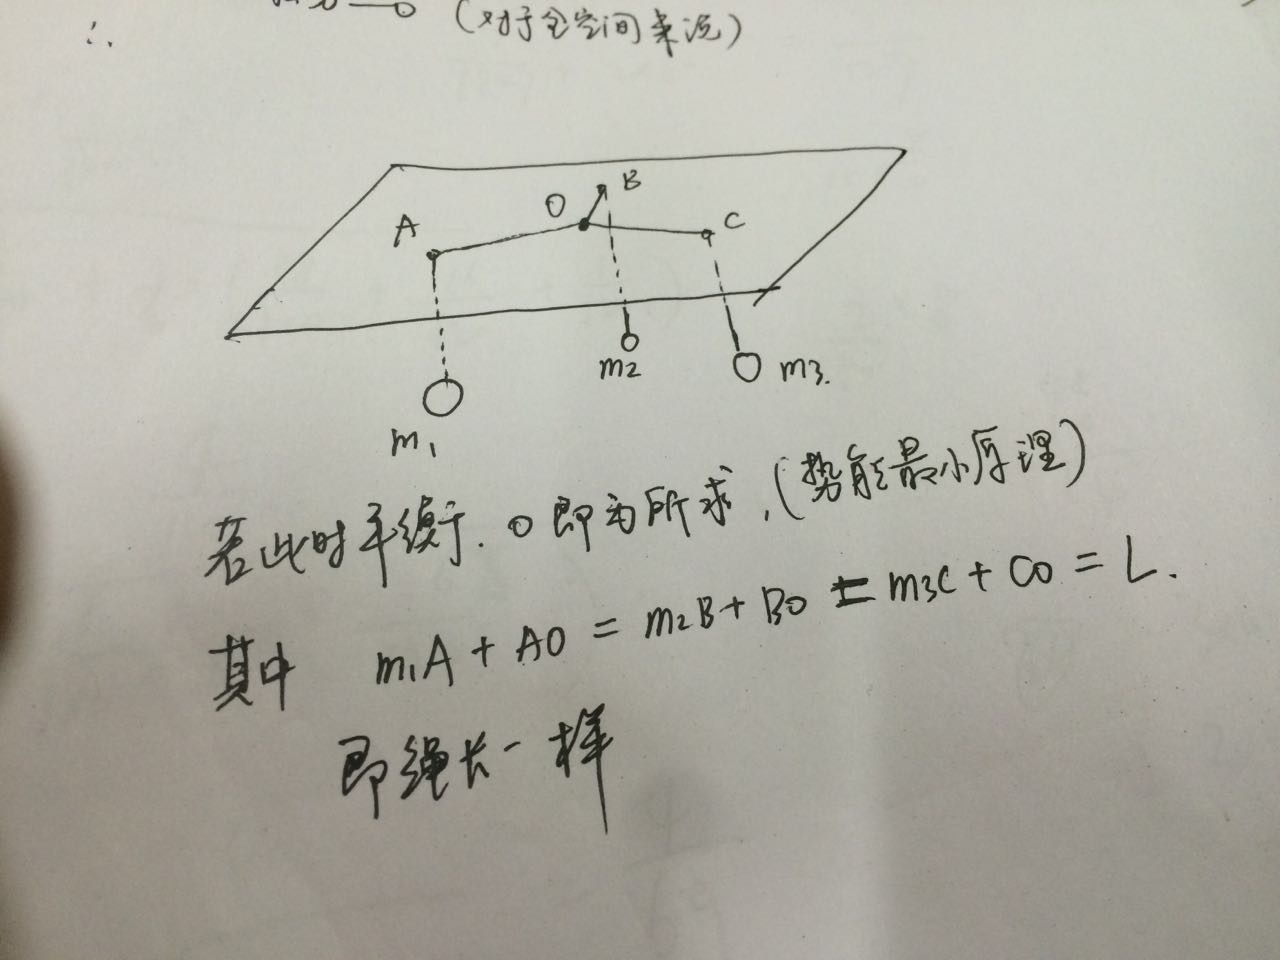 ∴ (对于全空间来说)
A O B C
m2 m3.
m1
若此时平衡.O即为所求,(势能最小原理)
其中 m1A + AO = m2B + BO = m3C + CO = L.
即绳长一样